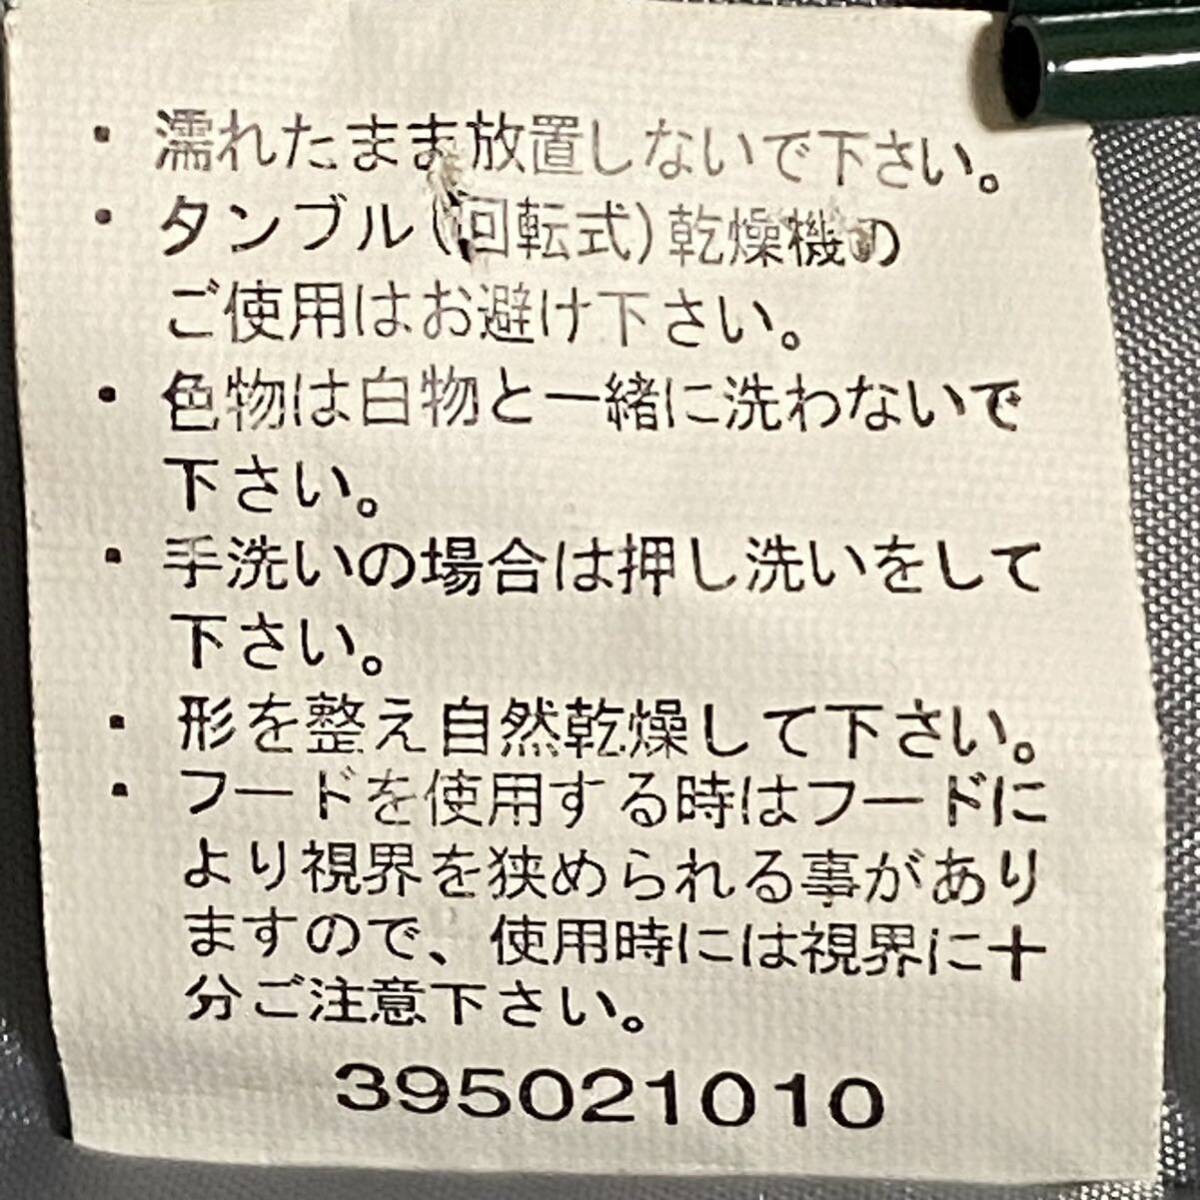 ・濡れたまま放置しないで下さい。
・タンブル(回転式)乾燥機の
ご使用はお避け下さい。
・色物は白物と一緒に洗わないで
下さい。
・手洗いの場合は押し洗いをして
下さい。
・形を整え自然乾燥して下さい。
・フードを使用する時はフードに
より視界を狭められる事があり
ますので、使用時には視界に十
分ご注意下さい。
395021010